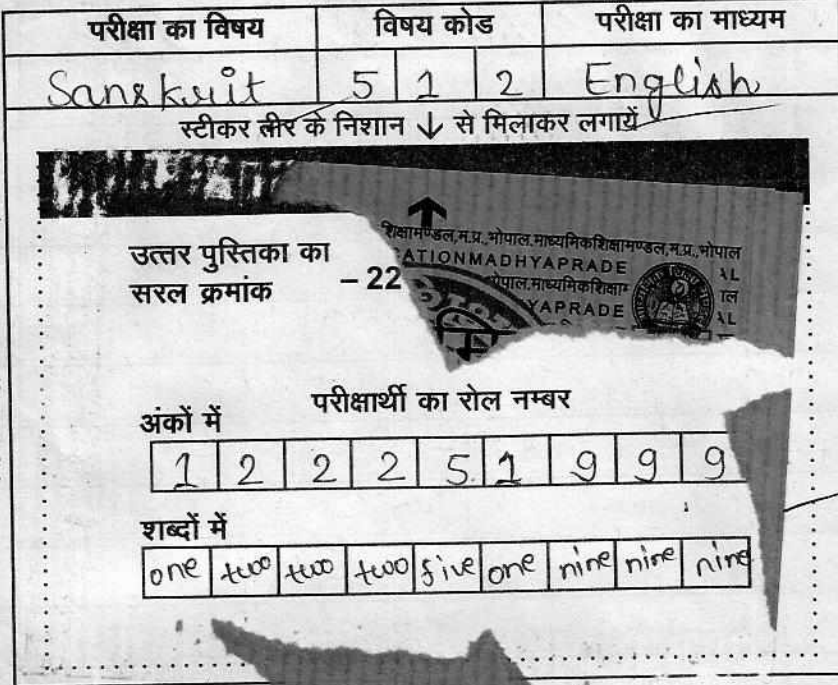 परीक्षा का विषय विषय कोड परीक्षा का माध्यम
Sanskrit 5 1 2 English
स्टीकर तीर के निशान ↓ से मिलाकर लगायें
शिक्षामण्डल,म.प्र.,भोपाल,माध्यमिकशिक्षामण्डल,म.प्र.,भोपाल
ATIONMADHYAPRADE
उत्तर पुस्तिका का
सरल क्रमांक – 22
YAPRADE
परीक्षार्थी का रोल नम्बर
अंकों में
1 2 2 2 5 1 9 9 9
शब्दों में
one two two two five one nine nine nine